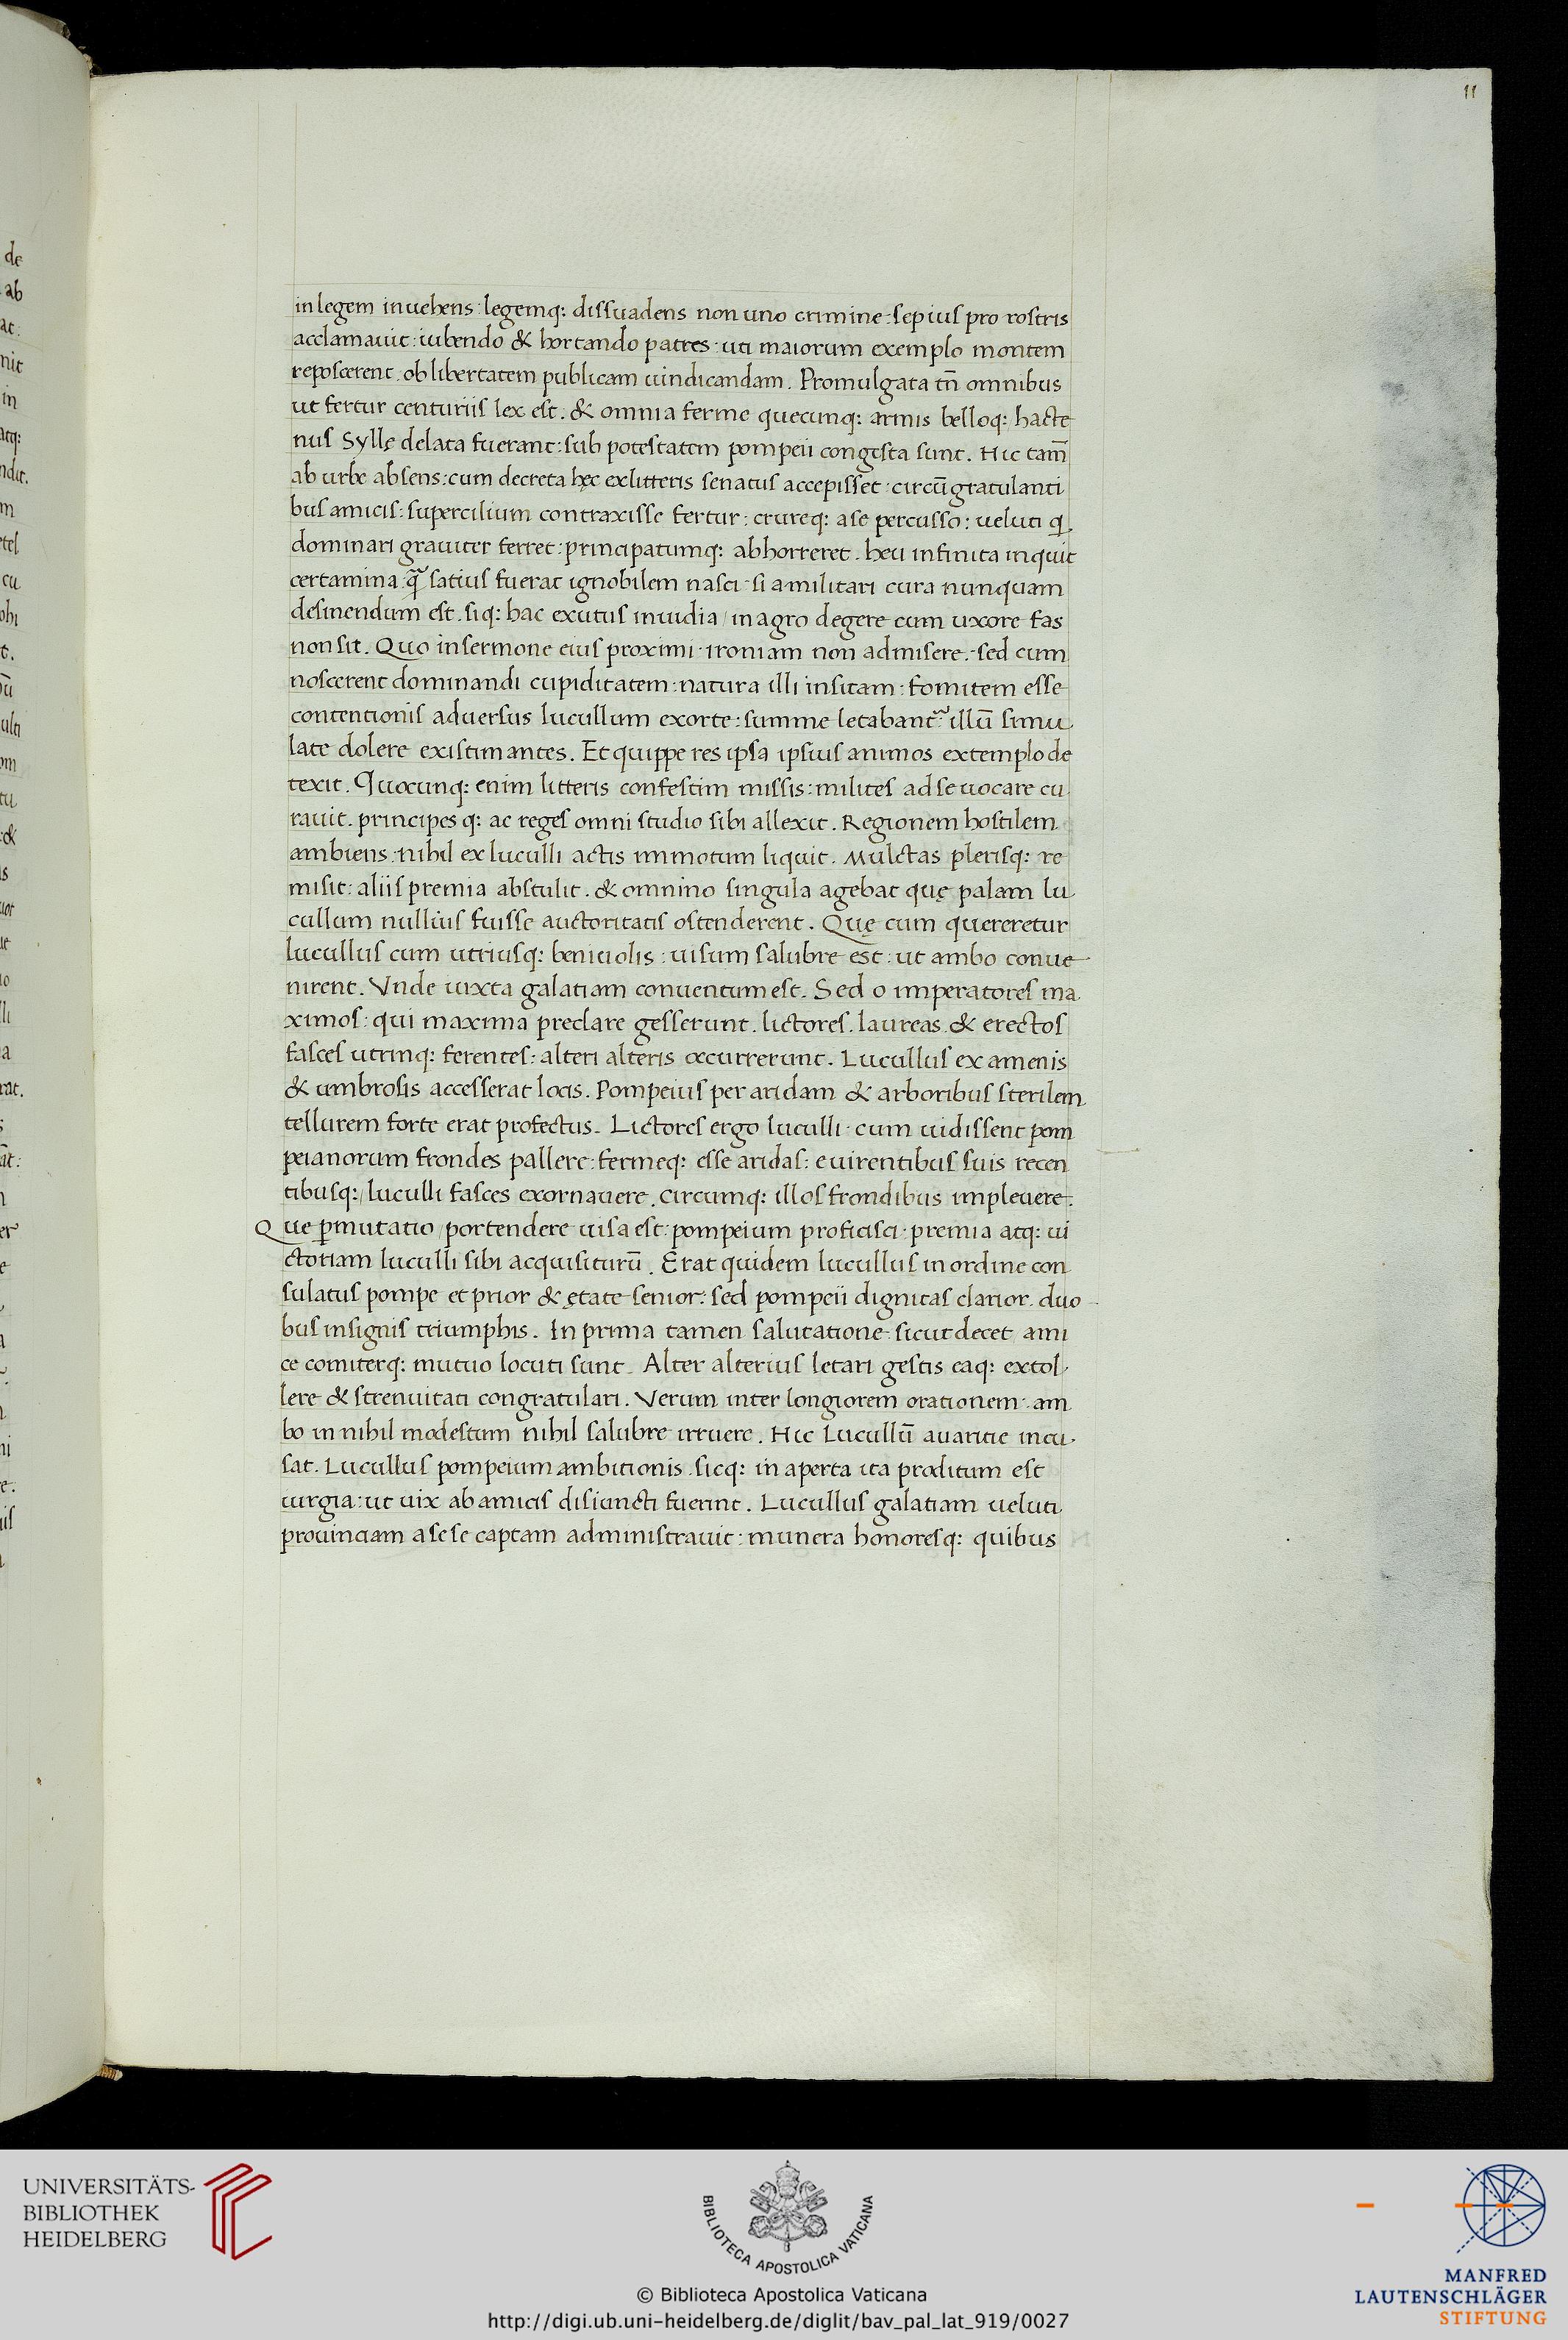 11
in legem inuehens: legemq: dissuadens non uno crimine: sepius pro rostris
acclamauit: iubendo & hortando patres: uti maiorum exemplo montem
reposcerent. ob libertatem publicam uindicandam. Promulgata tñ omnibus
ut fertur centuriis lex est. & omnia ferme quecunq: armis belloq: hacte
nus Syllę delata fuerant: sub potestatem pompeii congesta sunt. Hic tam̃
ab urbe absens: cum decreta hęc ex litteris senatus accepisset: circũ gratulanti
bus amicis: supercilium contraxisse fertur: crureq: a se percusso: ueluti q
dominari grauiter ferret: principatumq: abhorreret. heu infinita inquit
certamina: q̃ satius fuerat ignobilem nasci: si a militari cura nunquam
desinendum est. siq: hac exutus inuidia / in agro degere cum uxore fas
non sit. Quo in sermone eius proximi: ironiam non admisere: sed cum
noscerent dominandi cupiditatem: natura illi insitam: fomitem esse
contentionis aduersus lucullum exorte: summe letabant˜: illũ simu
late dolere existimantes. Et quippe res ipsa ipsius animos extemplo de
texit. Quocunq: enim litteris confestim missis: milites ad se uocare cu
rauit. principes q: ac reges omni studio sibi allexit. Regionem hostilem
ambiens: nihil ex luculli actis immotum liquit. Mulctas plerisq: re
misit: aliis premia abstulit. & omnino singula agebat quę palam lu
cullum nullius fuisse auctoritatis ostenderent. Quę cum quereretur
lucullus cum utriusq: beniuolis: uisum salubre est: ut ambo conue
nirent. Vnde iuxta galatiam conuentum est. Sed o imperatores ma
ximos: qui maxima preclare gesserunt. lictores. laureas. & erectos
fasces utrinq: ferentes: alteri alteris occurrerunt. Lucullus ex amenis
& umbrosis accesserat locis. Pompeius per aridam & arboribus sterilem
tellurem forte erat profectus. Lictores ergo luculli: cum uidissent pom
peianorum frondes pallere: fermeq: esse aridas: e uirentibus suis recen
tibusq: / luculli fasces exornauere. circumq: illos frondibus impleuere.
Que p̱mutatio / portendere uisa est: pompeium proficisci: premia atq: ui
ctoriam luculli sibi acquisiturũ. Erat quidem lucullus in ordine con
sulatus pompe et prior & ętate senior: sed pompeii dignitas clarior. duo
bus insignis triumphis. In prima tamen salutatione: sicut decet ami
ce comiterq: mutuo locuti sunt. Alter alterius letari gestis eaq: extol
lere & strenuitati congratulari. Verum inter longiorem orationem: am
bo in nihil modestum nihil salubre irruere. Hic Lucullũ auaritie incu
sat. Lucullus pompeium ambitionis. sicq: in aperta ita proditum est
iurgia: ut uix ab amicis disiuncti fuerint. Lucullus galatiam ueluti
prouinciam a sese captam administrauit: munera honoresq: quibus
UNIVERSITÄTS-
BIBLIOTHEK
HEIDELBERG
BIBLIOTECA APOSTOLICA VATICANA
© Biblioteca Apostolica Vaticana
http://digi.ub.uni-heidelberg.de/diglit/bav_pal_lat_919/0027
MANFRED
LAUTENSCHLÄGER
STIFTUNG